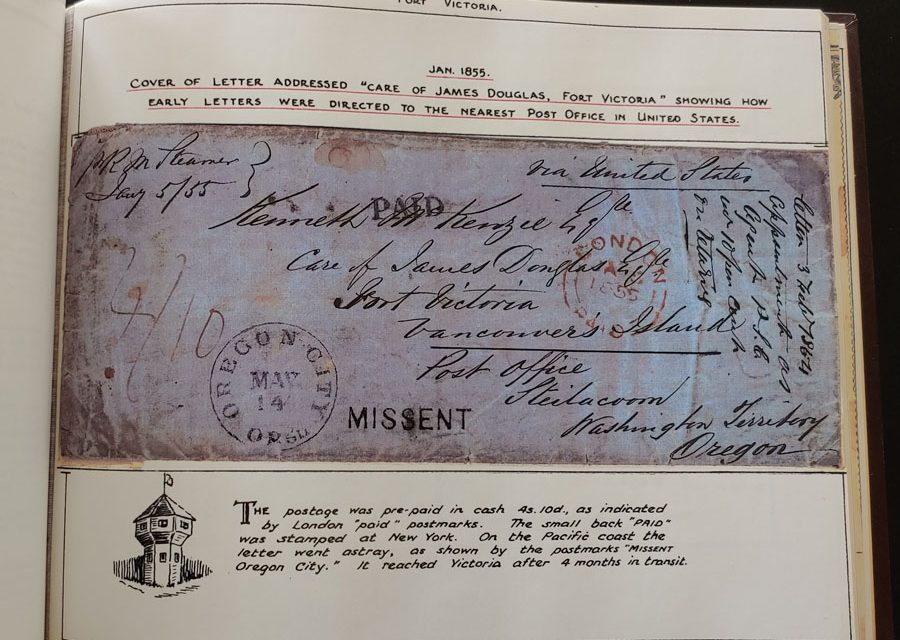 FORT VICTORIA.
JAN. 1855.
COVER OF LETTER ADDRESSED "CARE OF JAMES DOUGLAS, FORT VICTORIA" SHOWING HOW
EARLY LETTERS WERE DIRECTED TO THE NEAREST POST OFFICE IN UNITED STATES.
pr R M Steamer
Jany 5/55
via United States
PAID
Kenneth Mc Kenzie Esqre
Care of James Douglas Esqre
Fort Victoria
Vancouvers Island
Post Office
Steilacoom
Washington Territory
Oregon
LONDON
1855
PAID
4/10
OREGON CITY
MAR
14
ORGN
MISSENT
letter 3 Feby 1854
Appointment as
Agent P.S.C.
THE postage was pre-paid in cash 4s. 10d., as indicated
by London "paid" postmarks. The small back "PAID"
was stamped at New York. On the Pacific coast the
letter went astray, as shown by the postmarks "MISSENT
Oregon City." It reached Victoria after 4 months in transit.